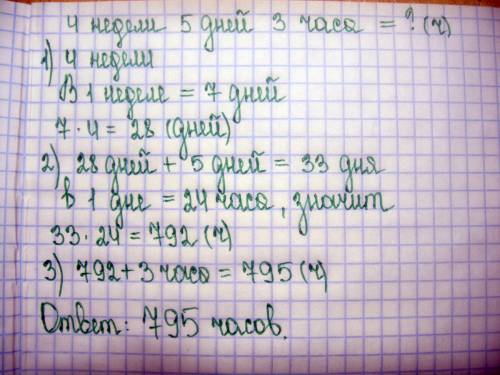 4 недели 5 дней 3 часа = ? (ч)
1) 4 недели
В 1 неделе = 7 дней
7 · 4 = 28 (дней)
2) 28 дней + 5 дней = 33 дня
В 1 дне = 24 часа, значит
33 · 24 = 792 (ч)
3) 792 + 3 часа = 795 (ч)
Ответ: 795 часов.